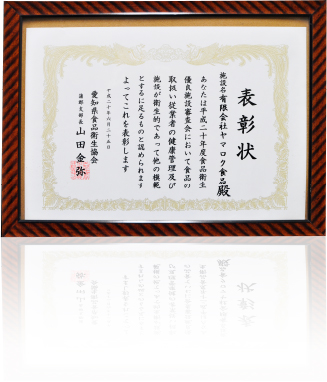 表彰状
施設名有限会社ヤマロク食品殿
あなたは平成二十年度食品衛生
優良施設審査会において食品の
取扱い従業者の健康管理及び
施設が衛生的であって他の模範
とするに足るものと認められます
よってこれを表彰します
平成二十年六月二十五日
愛知県食品衛生協会
蒲郡支部長 山田金弥